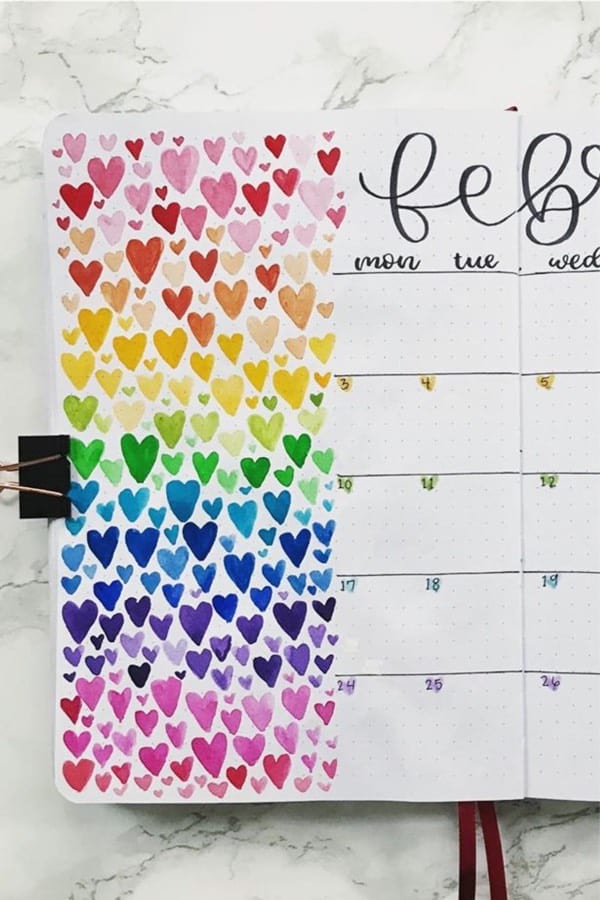 feb
mon tue wed
3 4 5
10 11 12
17 18 19
24 25 26